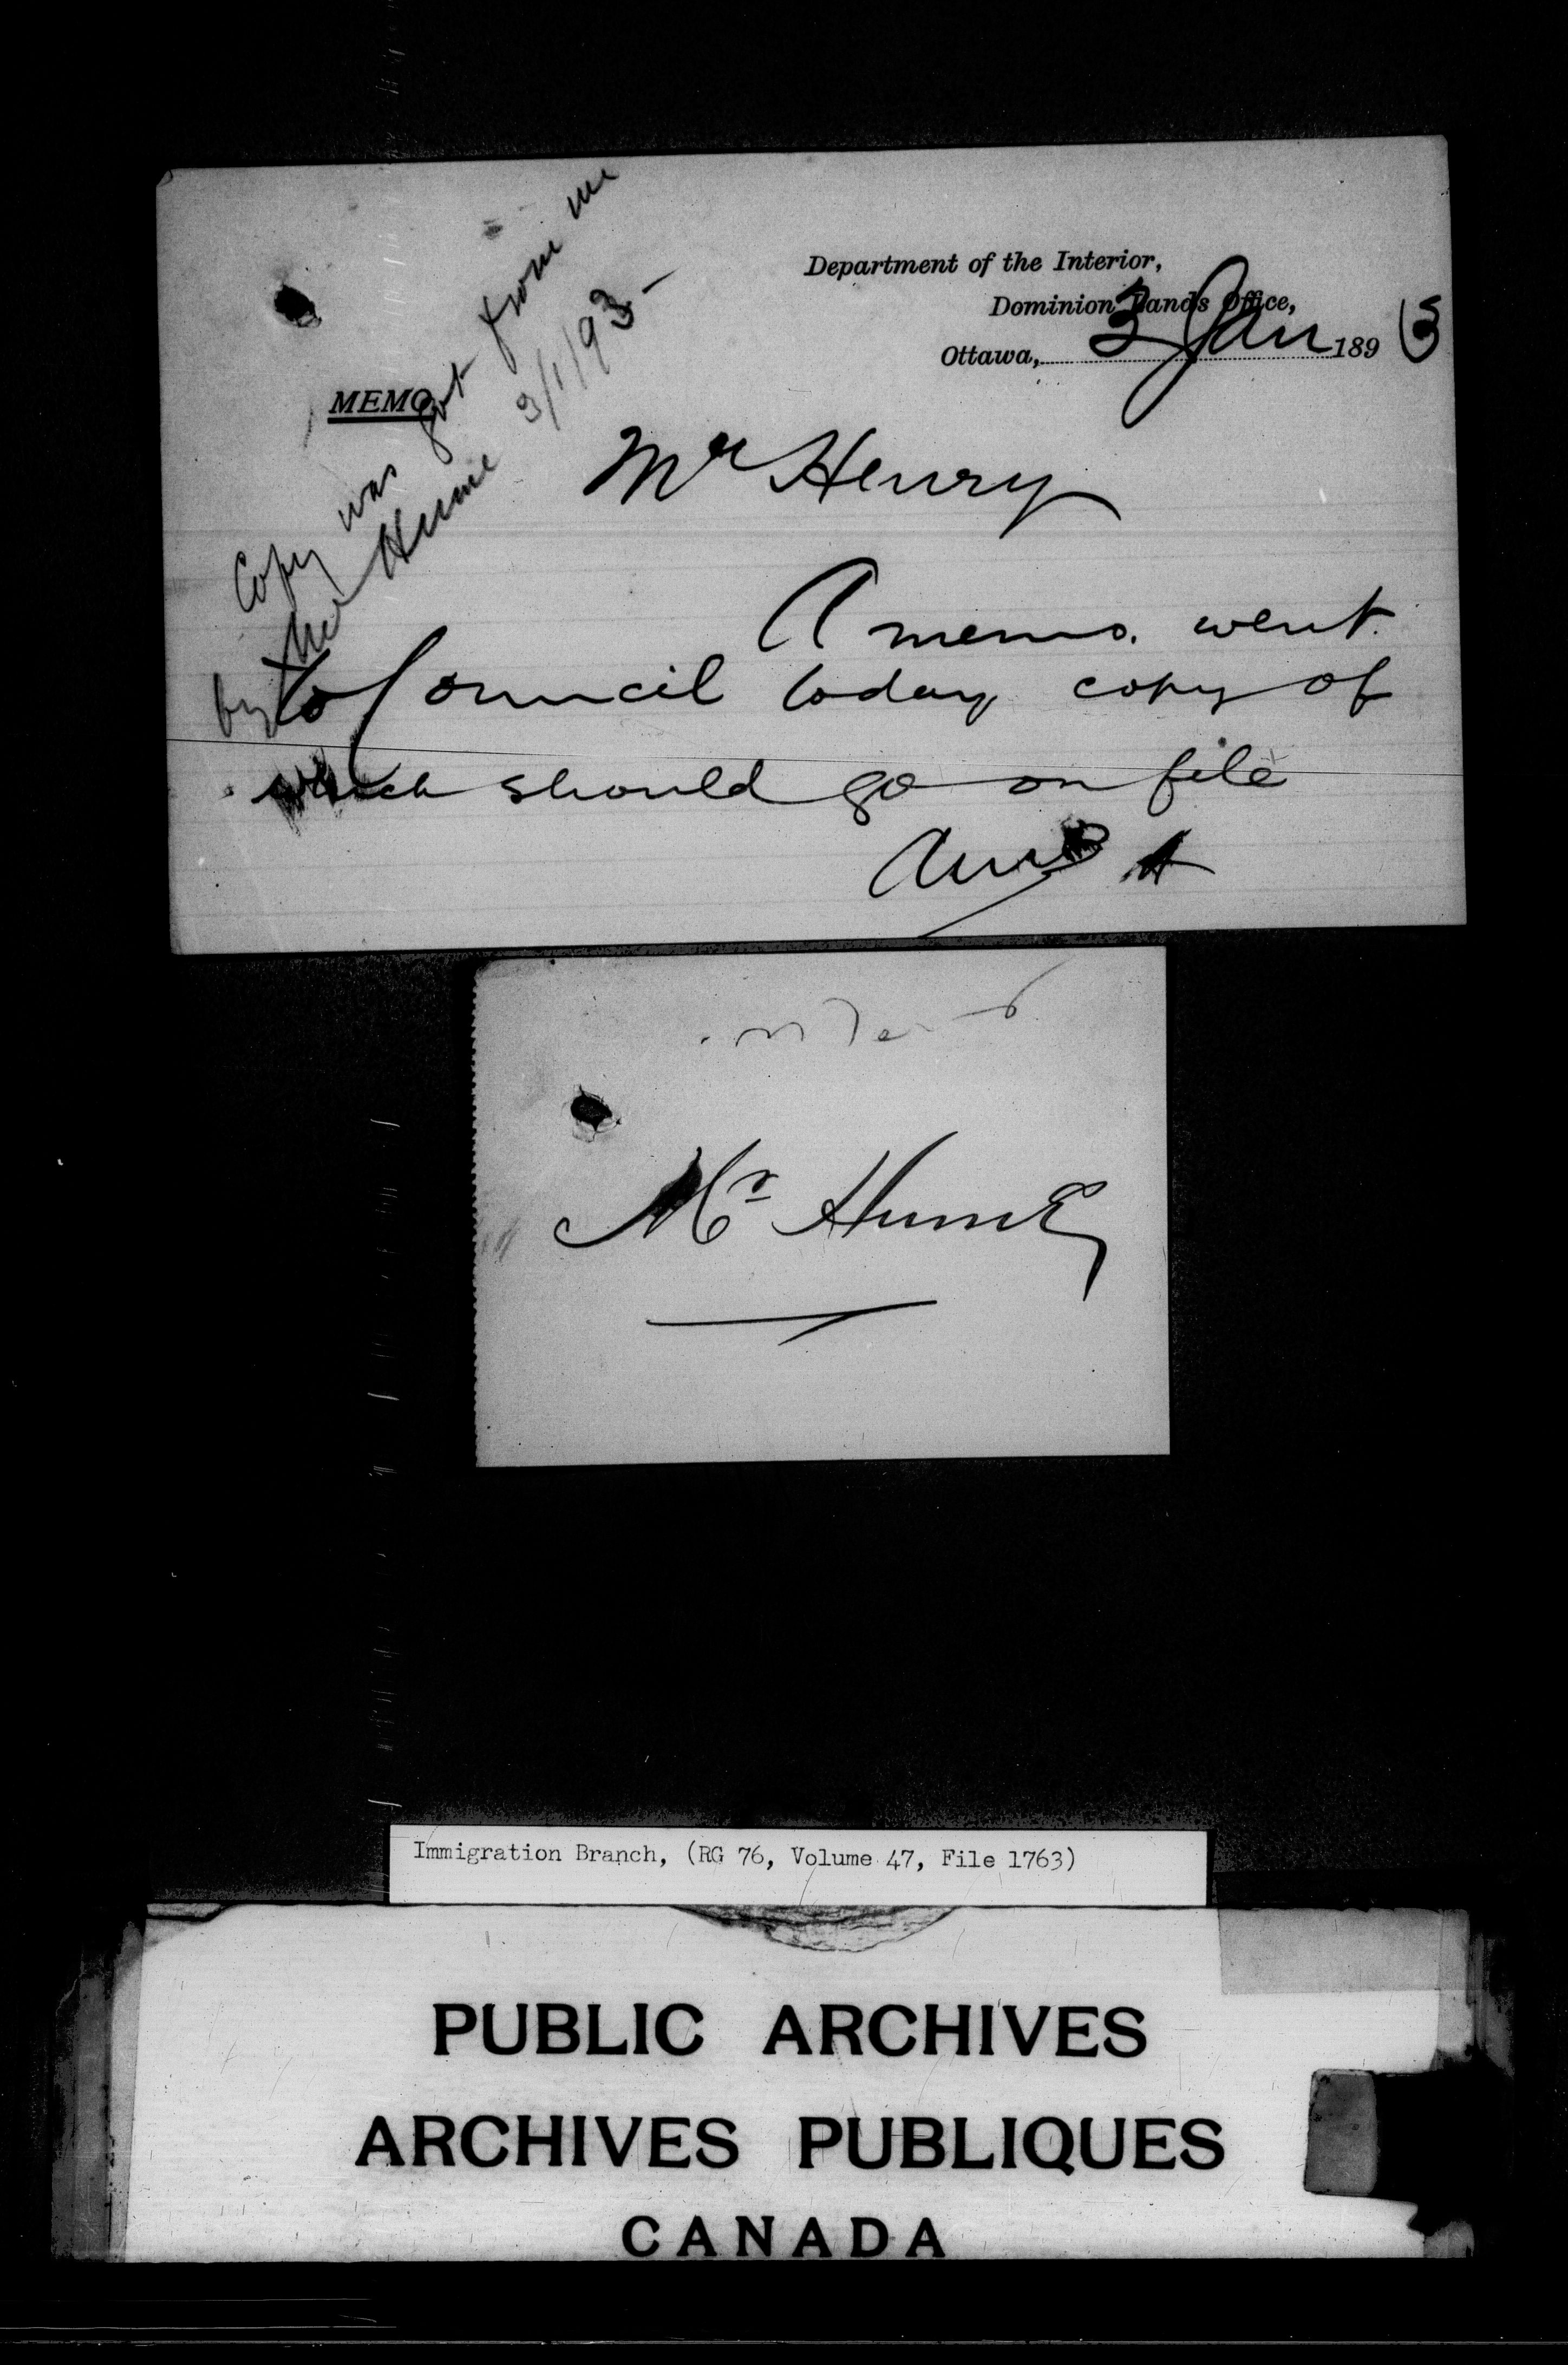 Department of the Interior,
Dominion Lands Office,
Ottawa, 3 Jan 1893
MEMO
Copy was got from me
by Mr Hume 3/1/93-
Mr Henry
A memo. went
to Council today copy of
which should go on file
Mr Hume
Immigration Branch, (RG 76, Volume 47, File 1763)
PUBLIC ARCHIVES
ARCHIVES PUBLIQUES
CANADA